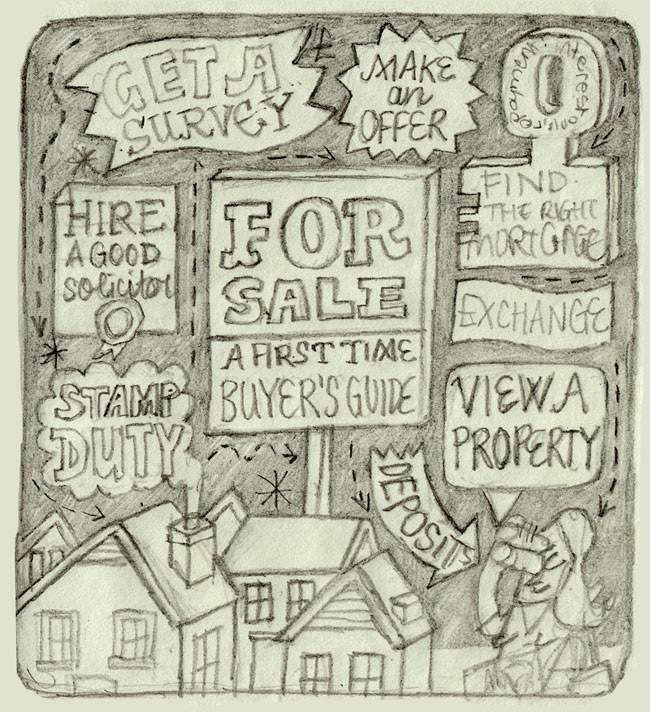 GET A
SURVEY
MAKE
an
OFFER
HIRE
A GOOD
Solicitor
FOR
SALE
A FIRST TIME
BUYER'S GUIDE
FIND
THE RIGHT
MORTGAGE
EXCHANGE
STAMP
DUTY
VIEW A
PROPERTY
DEPOSIT